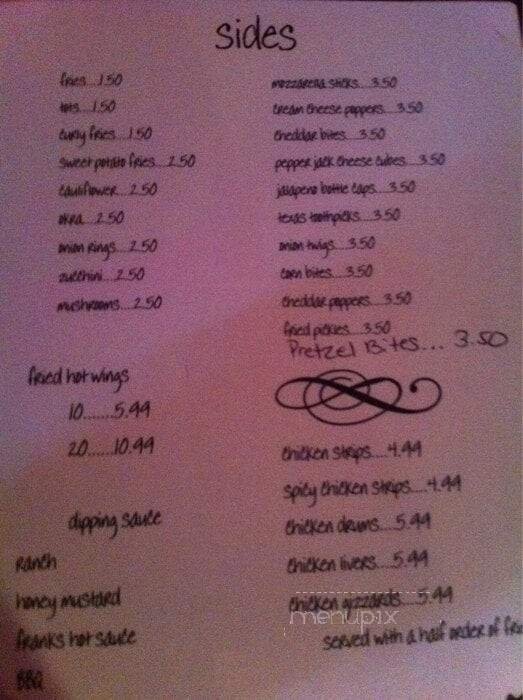 sides
fries....1.50
tots....1.50
curly fries....1.50
sweet potato fries....2.50
cauliflower....2.50
okra....2.50
onion rings....2.50
zucchini....2.50
mushrooms....2.50
fried hot wings
10.......5.99
20......10.99
dipping sauce
Ranch
honey mustard
franks hot sauce
BBQ
mozzarella sticks....3.50
cream cheese poppers....3.50
cheddar bites....3.50
pepper jack cheese cubes....3.50
jalapeno bottle caps....3.50
texas toothpicks....3.50
onion twigs....3.50
corn bites....3.50
cheddar poppers....3.50
fried pickles....3.50
Pretzel Bites... 3.50
chicken strips....4.99
spicy chicken strips....4.99
chicken drums....5.99
chicken livers....5.99
chicken gizzards....5.99
menupix
served with a half order of